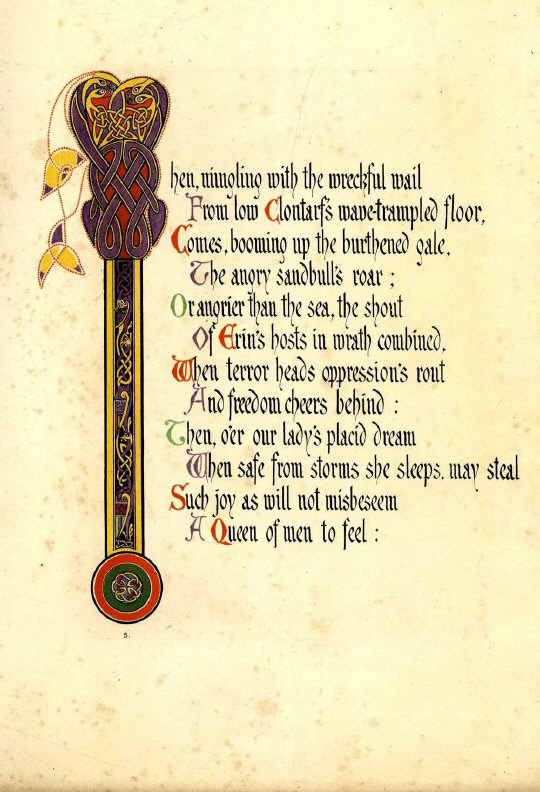 hen, mingling with the wreckful wail
From low Clontarf's wave-trampled floor,
Comes, booming up the burthened gale,
The angry sandbull's roar ;
Or angrier than the sea, the shout
Of Erin's hosts in wrath combined,
When terror heads oppression's rout
And freedom cheers behind :
Then, o'er our lady's placid dream
When safe from storms she sleeps, may steal
Such joy as will not misbeseem
A Queen of men to feel :